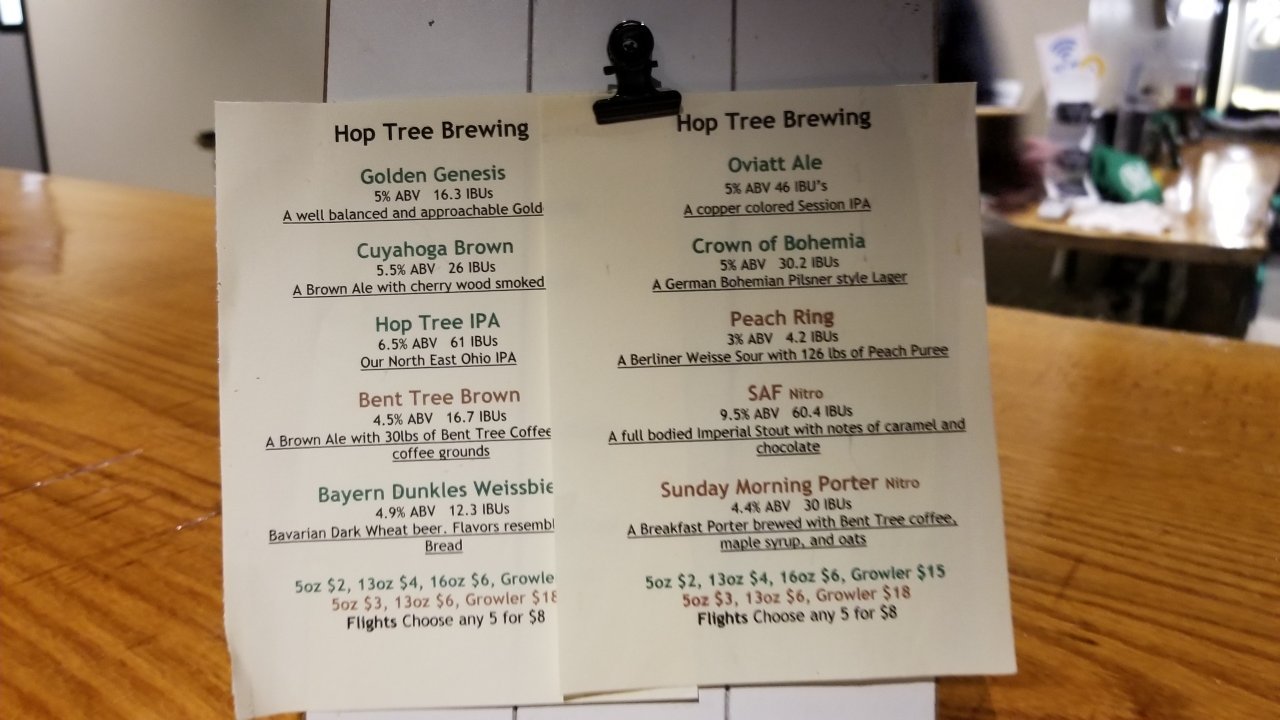 Hop Tree Brewing
Golden Genesis
5% ABV 16.3 IBUs
A well balanced and approachable Gold
Cuyahoga Brown
5.5% ABV 26 IBUs
A Brown Ale with cherry wood smoked
Hop Tree IPA
6.5% ABV 61 IBUs
Our North East Ohio IPA
Bent Tree Brown
4.5% ABV 16.7 IBUs
A Brown Ale with 30lbs of Bent Tree Coffee
coffee grounds
Bayern Dunkles Weissbie
4.9% ABV 12.3 IBUs
Bavarian Dark Wheat beer. Flavors resembl
Bread
5oz $2, 13oz $4, 16oz $6, Growle
5oz $3, 13oz $6, Growler $18
Flights Choose any 5 for $8
Hop Tree Brewing
Oviatt Ale
5% ABV 46 IBU's
A copper colored Session IPA
Crown of Bohemia
5% ABV 30.2 IBUs
A German Bohemian Pilsner style Lager
Peach Ring
3% ABV 4.2 IBUs
A Berliner Weisse Sour with 126 lbs of Peach Puree
SAF Nitro
9.5% ABV 60.4 IBUs
A full bodied Imperial Stout with notes of caramel and
chocolate
Sunday Morning Porter Nitro
4.4% ABV 30 IBUs
A Breakfast Porter brewed with Bent Tree coffee,
maple syrup, and oats
5oz $2, 13oz $4, 16oz $6, Growler $15
5oz $3, 13oz $6, Growler $18
Flights Choose any 5 for $8